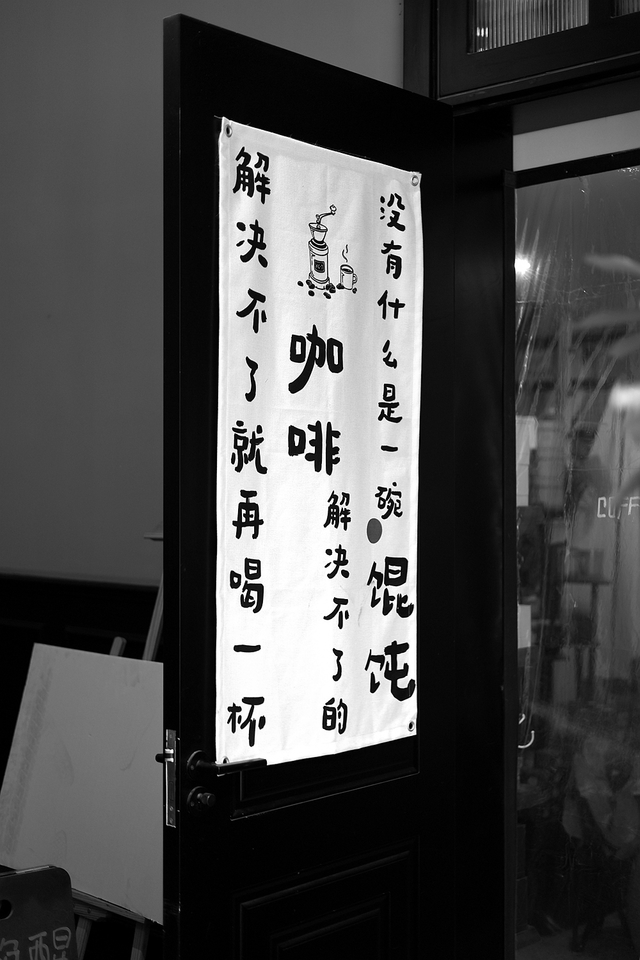 没有什么是一碗
馄饨
咖啡
解决不了的
解决不了就再喝一杯
醒